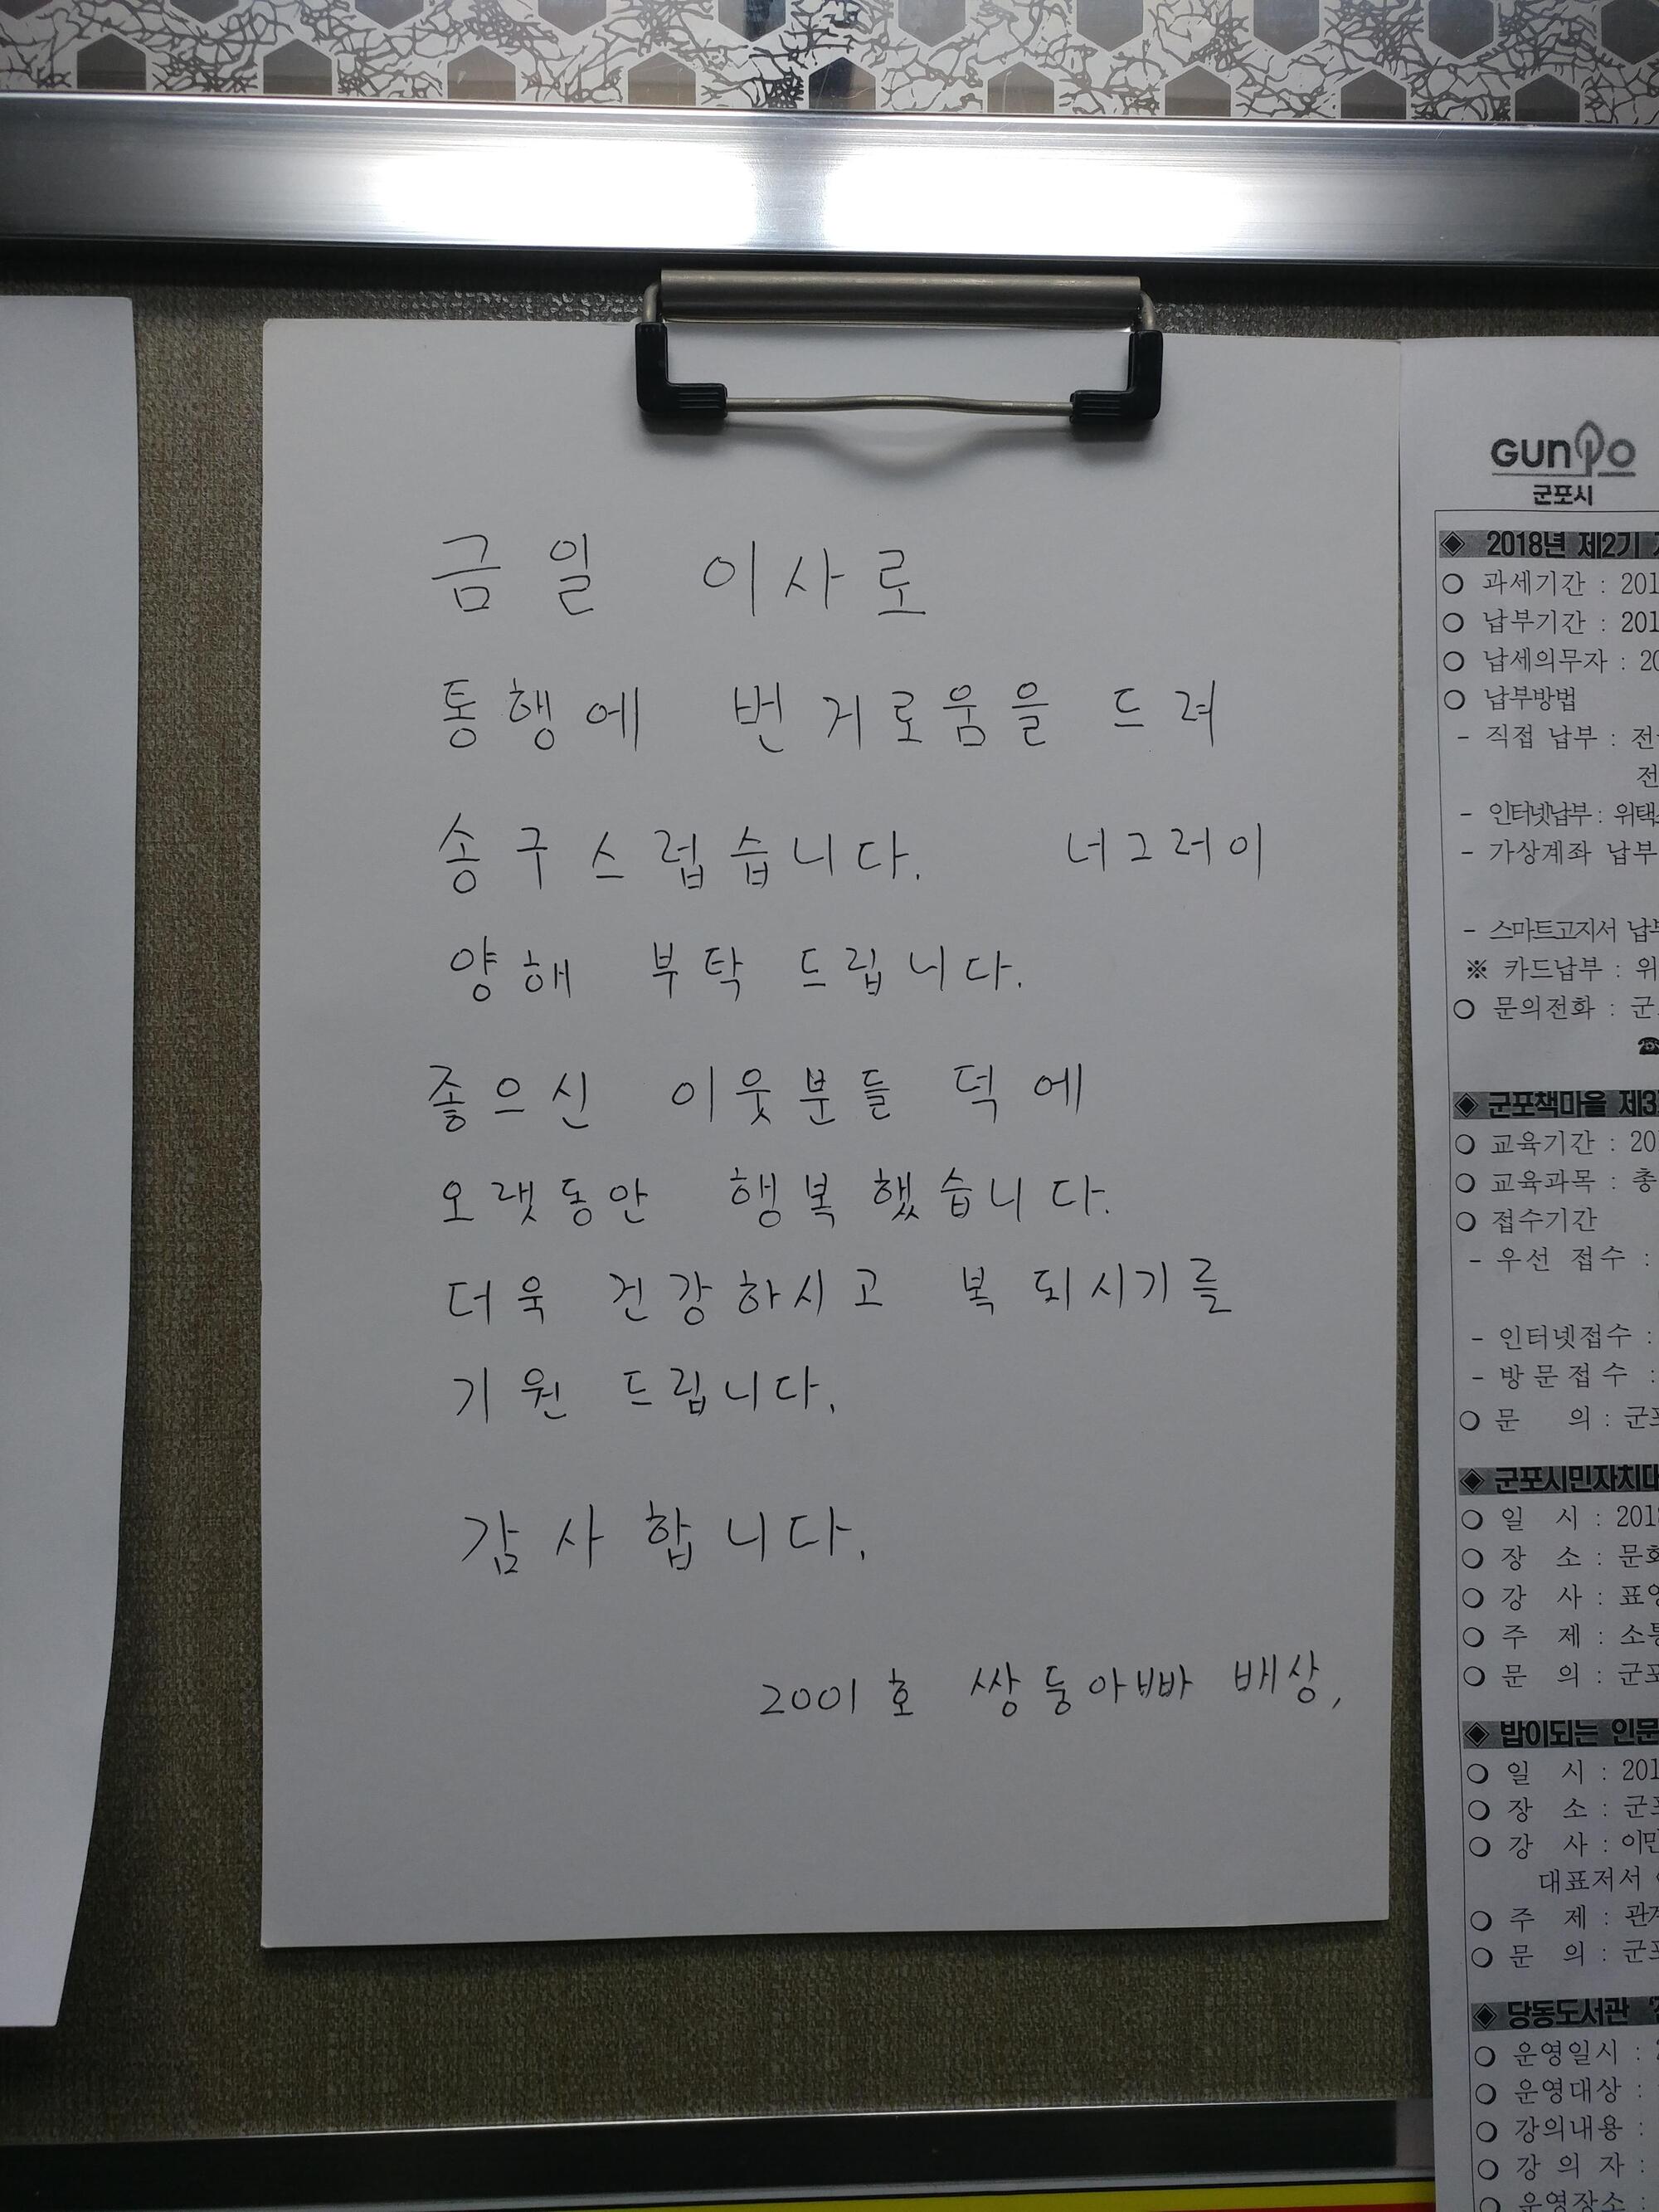 금일 이사로
통행에 번거로움을 드려
송구스럽습니다. 너그러이
양해 부탁 드립니다.
좋으신 이웃분들 덕에
오랫동안 행복했습니다.
더욱 건강하시고 복 되시기를
기원 드립니다.
감사합니다.
2001호 쌍둥아빠 배상,
GUNPO
군포시
◈ 2018년 제2기
○ 과세기간 : 201
○ 납부기간 : 201
○ 납세의무자 : 20
○ 납부방법
- 직접 납부 : 전
전
- 인터넷납부 : 위택
- 가상계좌 납부
- 스마트고지서 납부
※ 카드납부 : 위
○ 문의전화 : 군
☎
◈ 군포책마을 제3
○ 교육기간 : 20
○ 교육과목 : 총
○ 접수기간
- 우선 접수 :
- 인터넷접수 :
- 방문접수 :
○ 문 의 : 군포
◈ 군포시민자치대
○ 일 시 : 2018
○ 장 소 : 문화
○ 강 사 : 표
○ 주 제 : 소통
○ 문 의 : 군포
◈ 밥이되는 인문
○ 일 시 : 201
○ 장 소 : 군포
○ 강 사 : 이민
대표저서
○ 주 제 : 관계
○ 문 의 : 군포
◈ 당동도서관
○ 운영일시 :
○ 운영대상 :
○ 강의내용 :
○ 강 의 자 :
○ 운영장소 :